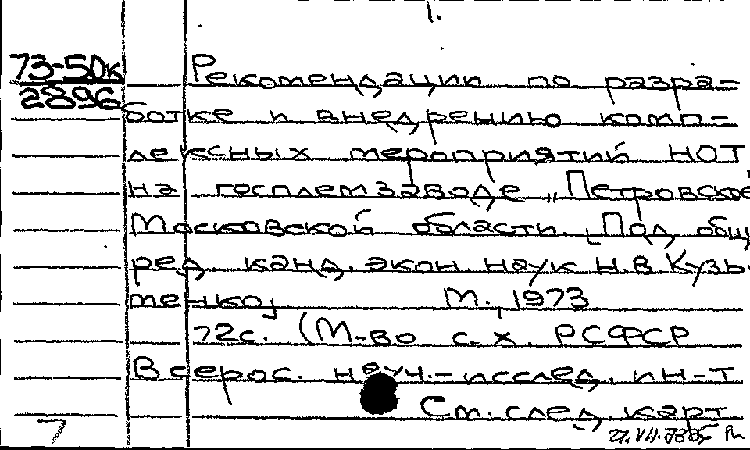 1.
73-50к
2896
Рекомендации по разра-
ботке и внедрению комп-
лексных мероприятий НОТ
на госплемзаводе „Петровское
Московской области. [Под общ.
ред. канд. экон. наук Н.В. Кузь-
менко]
М., 1973
72с. (М-во с.х. РСФСР
Всерос. науч.-исслед. ин-т
См. след. карт
7